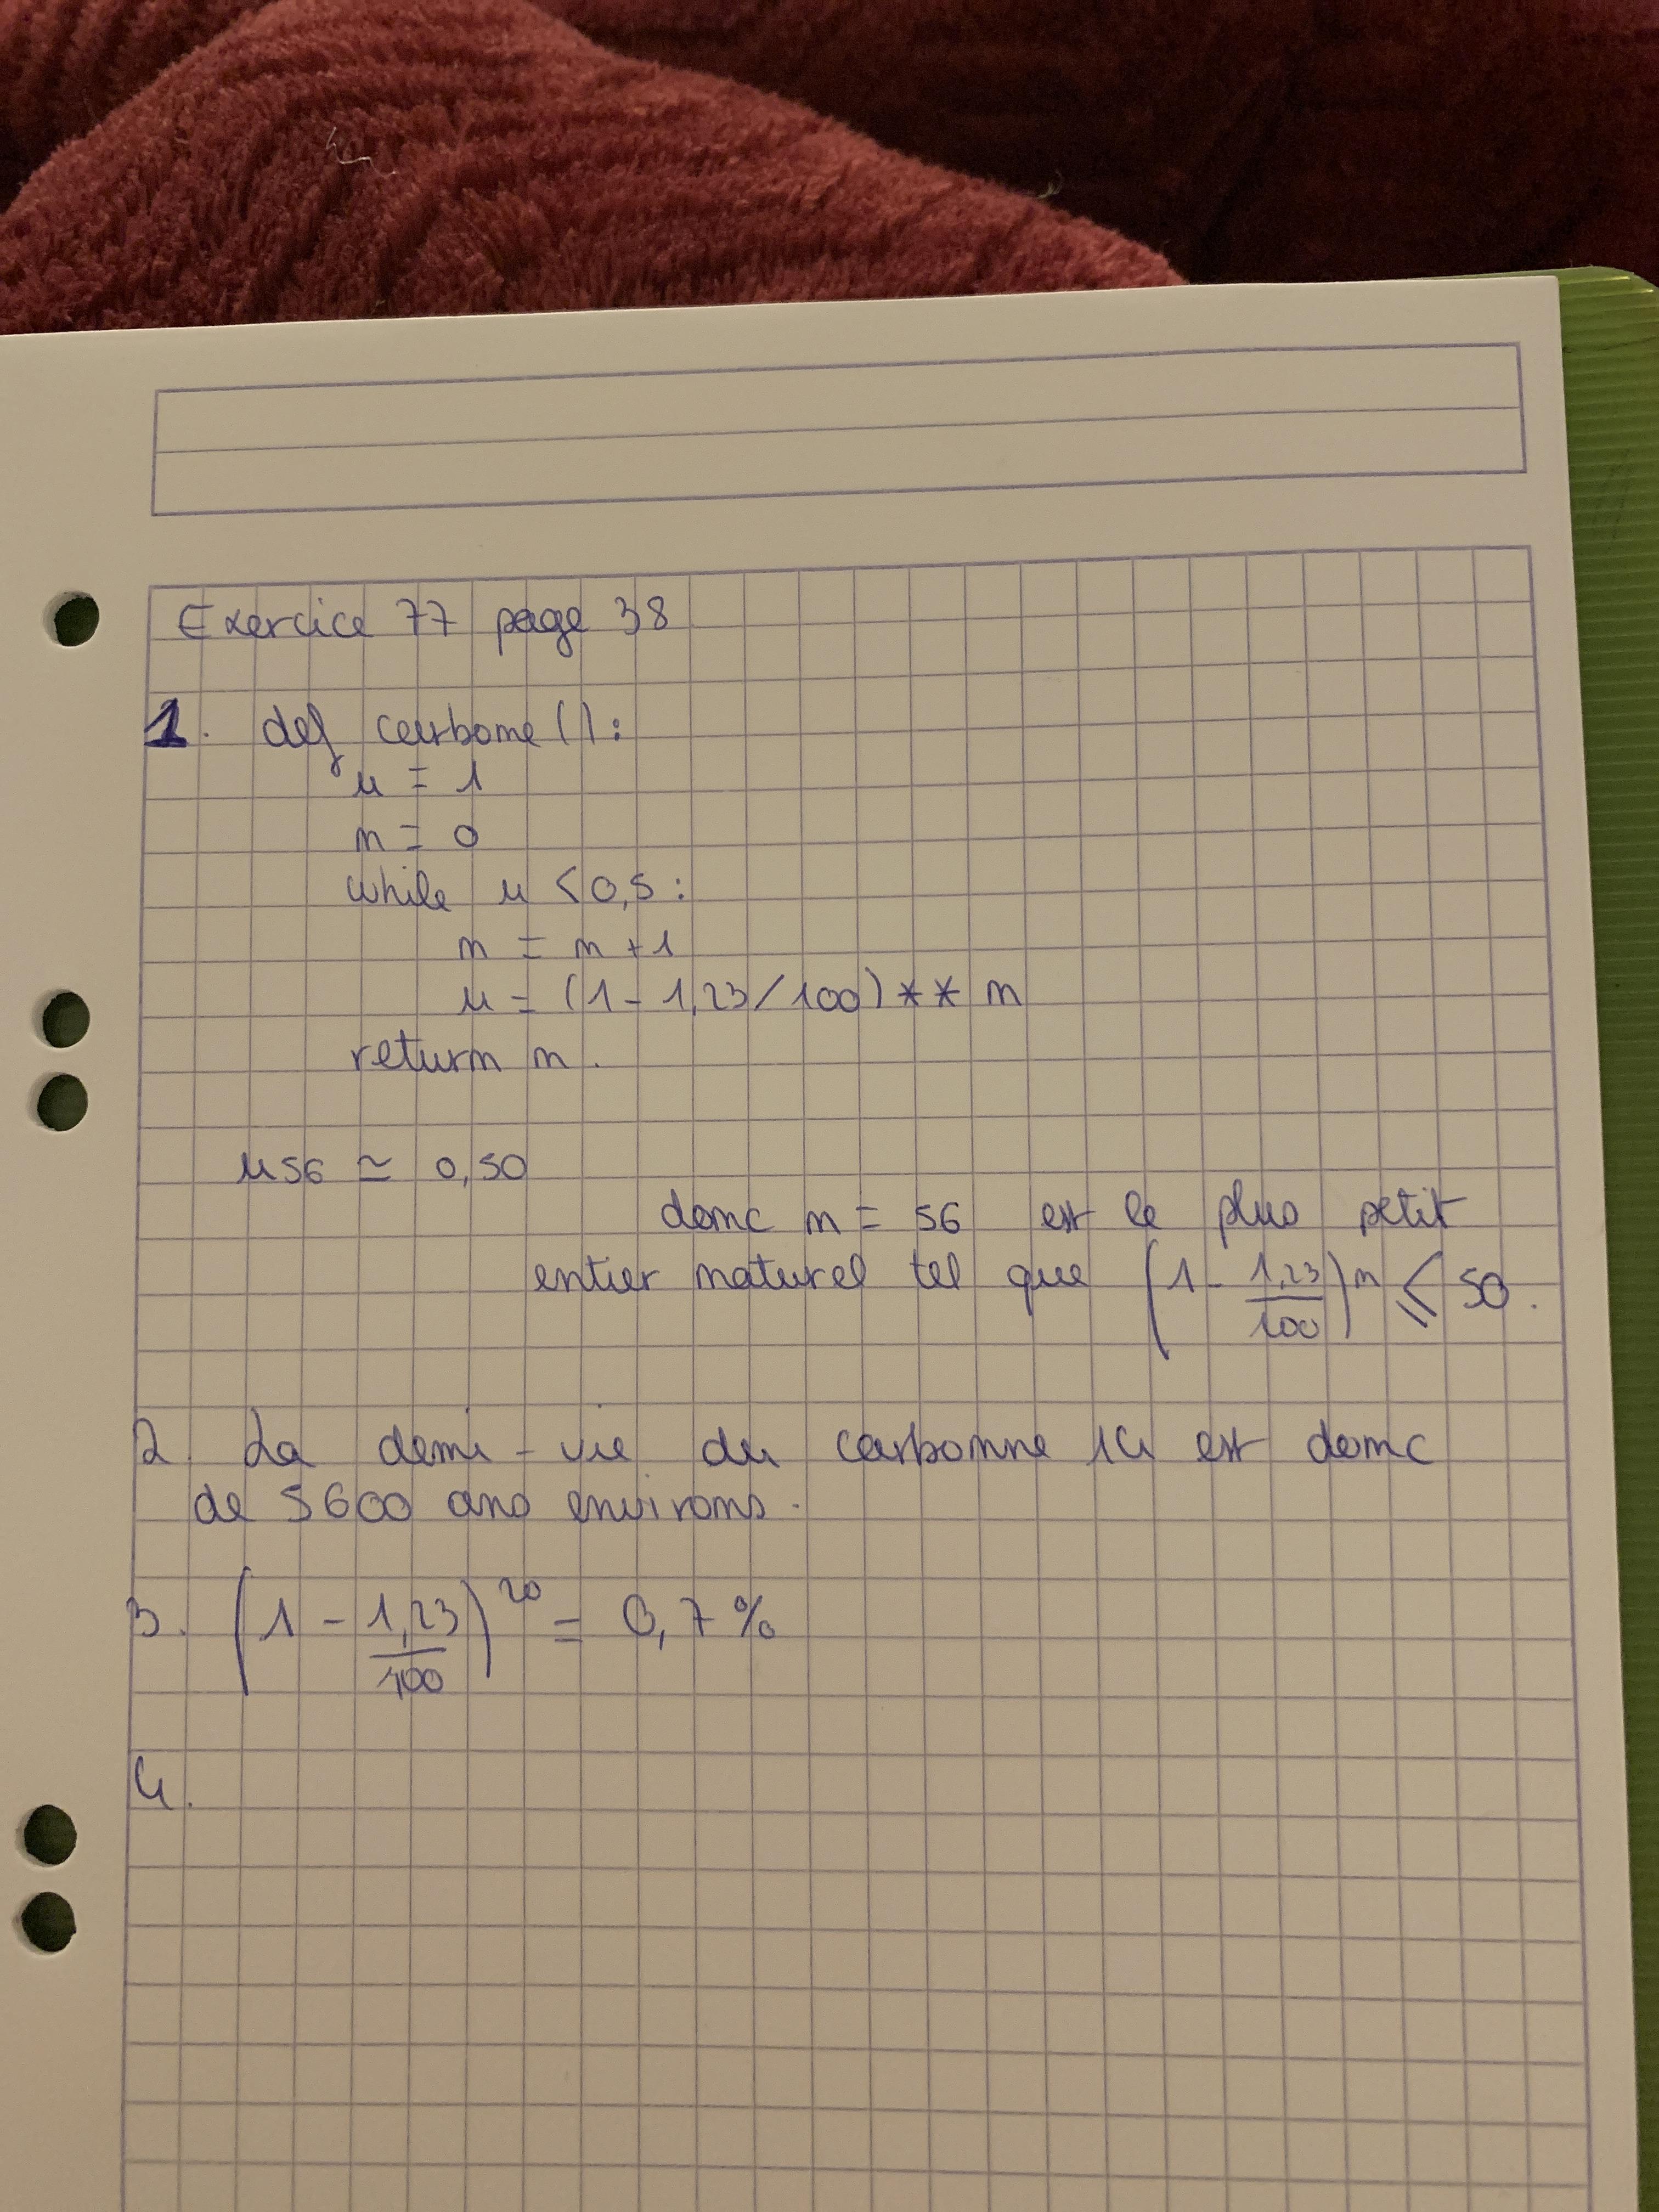 Exercice 77 page 38
1. def carbone():
u = 1
n = 0
while u < 0,5 :
n = n + 1
u = (1 - 1,23/100) ** n
return n.
u56 ≃ 0,50
donc n = 56 est le plus petit
entier naturel tel que (1 - 1,23/100)^n ⩽ 50.
2. La demi-vie du carbonne 14 est donc
de 5600 ans environs.
3. (1 - 1,23/100)^20 = 0,7 %
4.